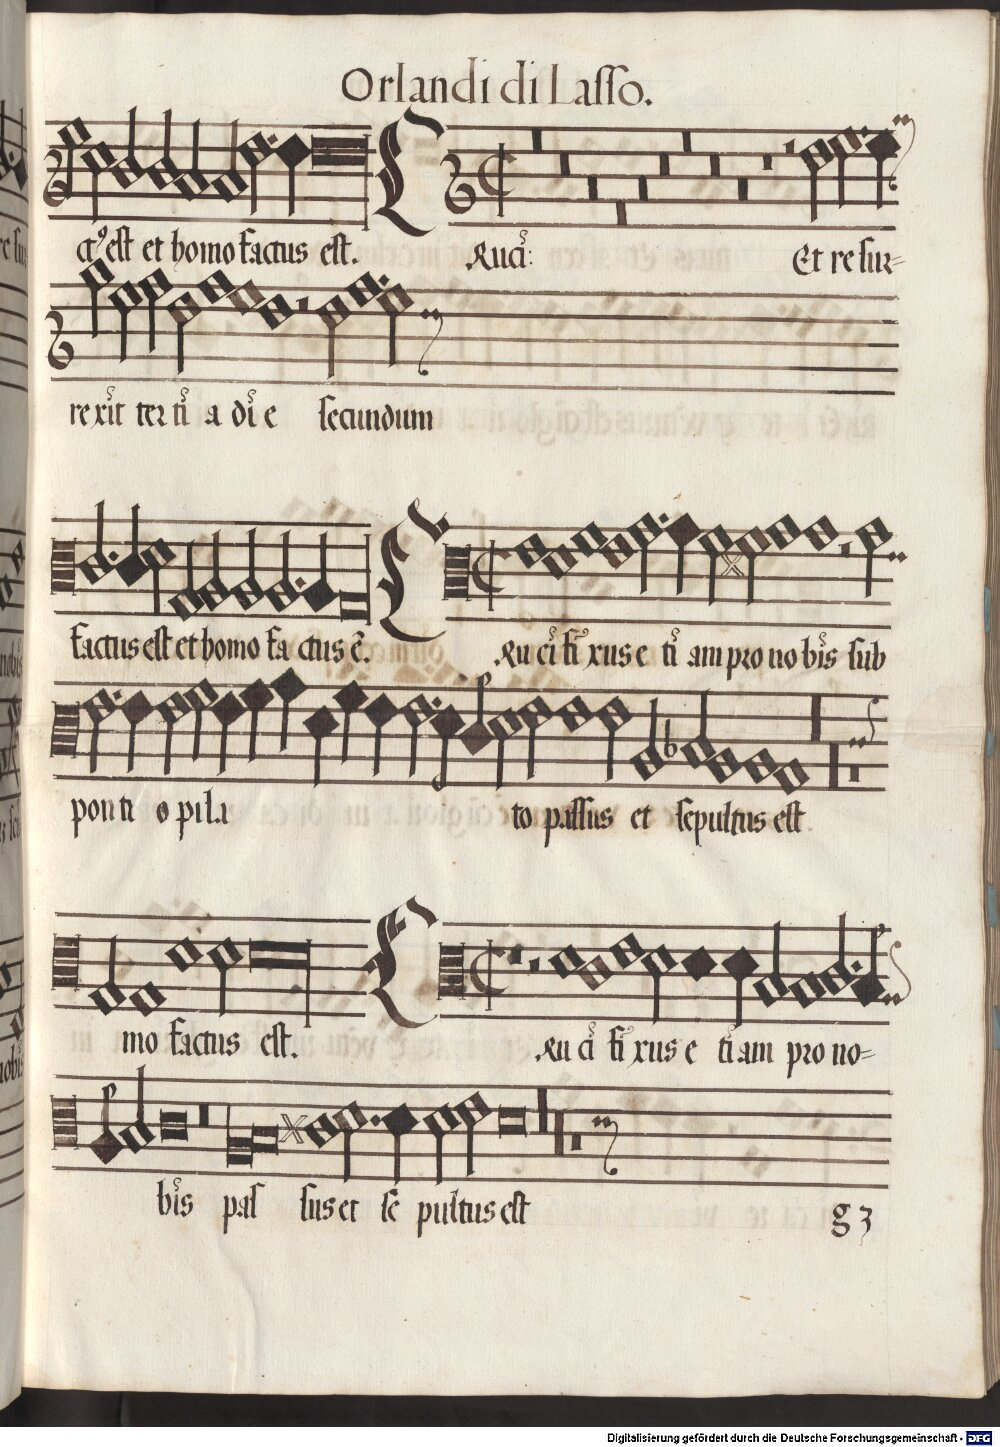 Orlandi di Lasso.
ct⁹ est et homo factus est. Ruci: Et re sur=
rexit ter ti a di e secundum
factus est et homo fa ctus ē. Ru ci fi xus e ti am pro no bis sub
pon ti o pila to passus et sepultus est
mo factus est. Ru ci fi xus e ti am pro no=
bis pas sus et se pultus est
g 3
Digitalisierung gefördert durch die Deutsche Forschungsgemeinschaft - DFG